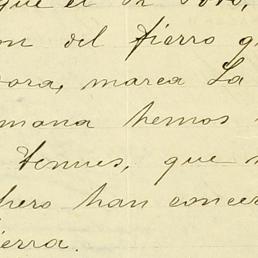 que el Sr Polo,
on del fierro q
ora, marca La
mana hemos
tenues, que
pero han concer
ierra.